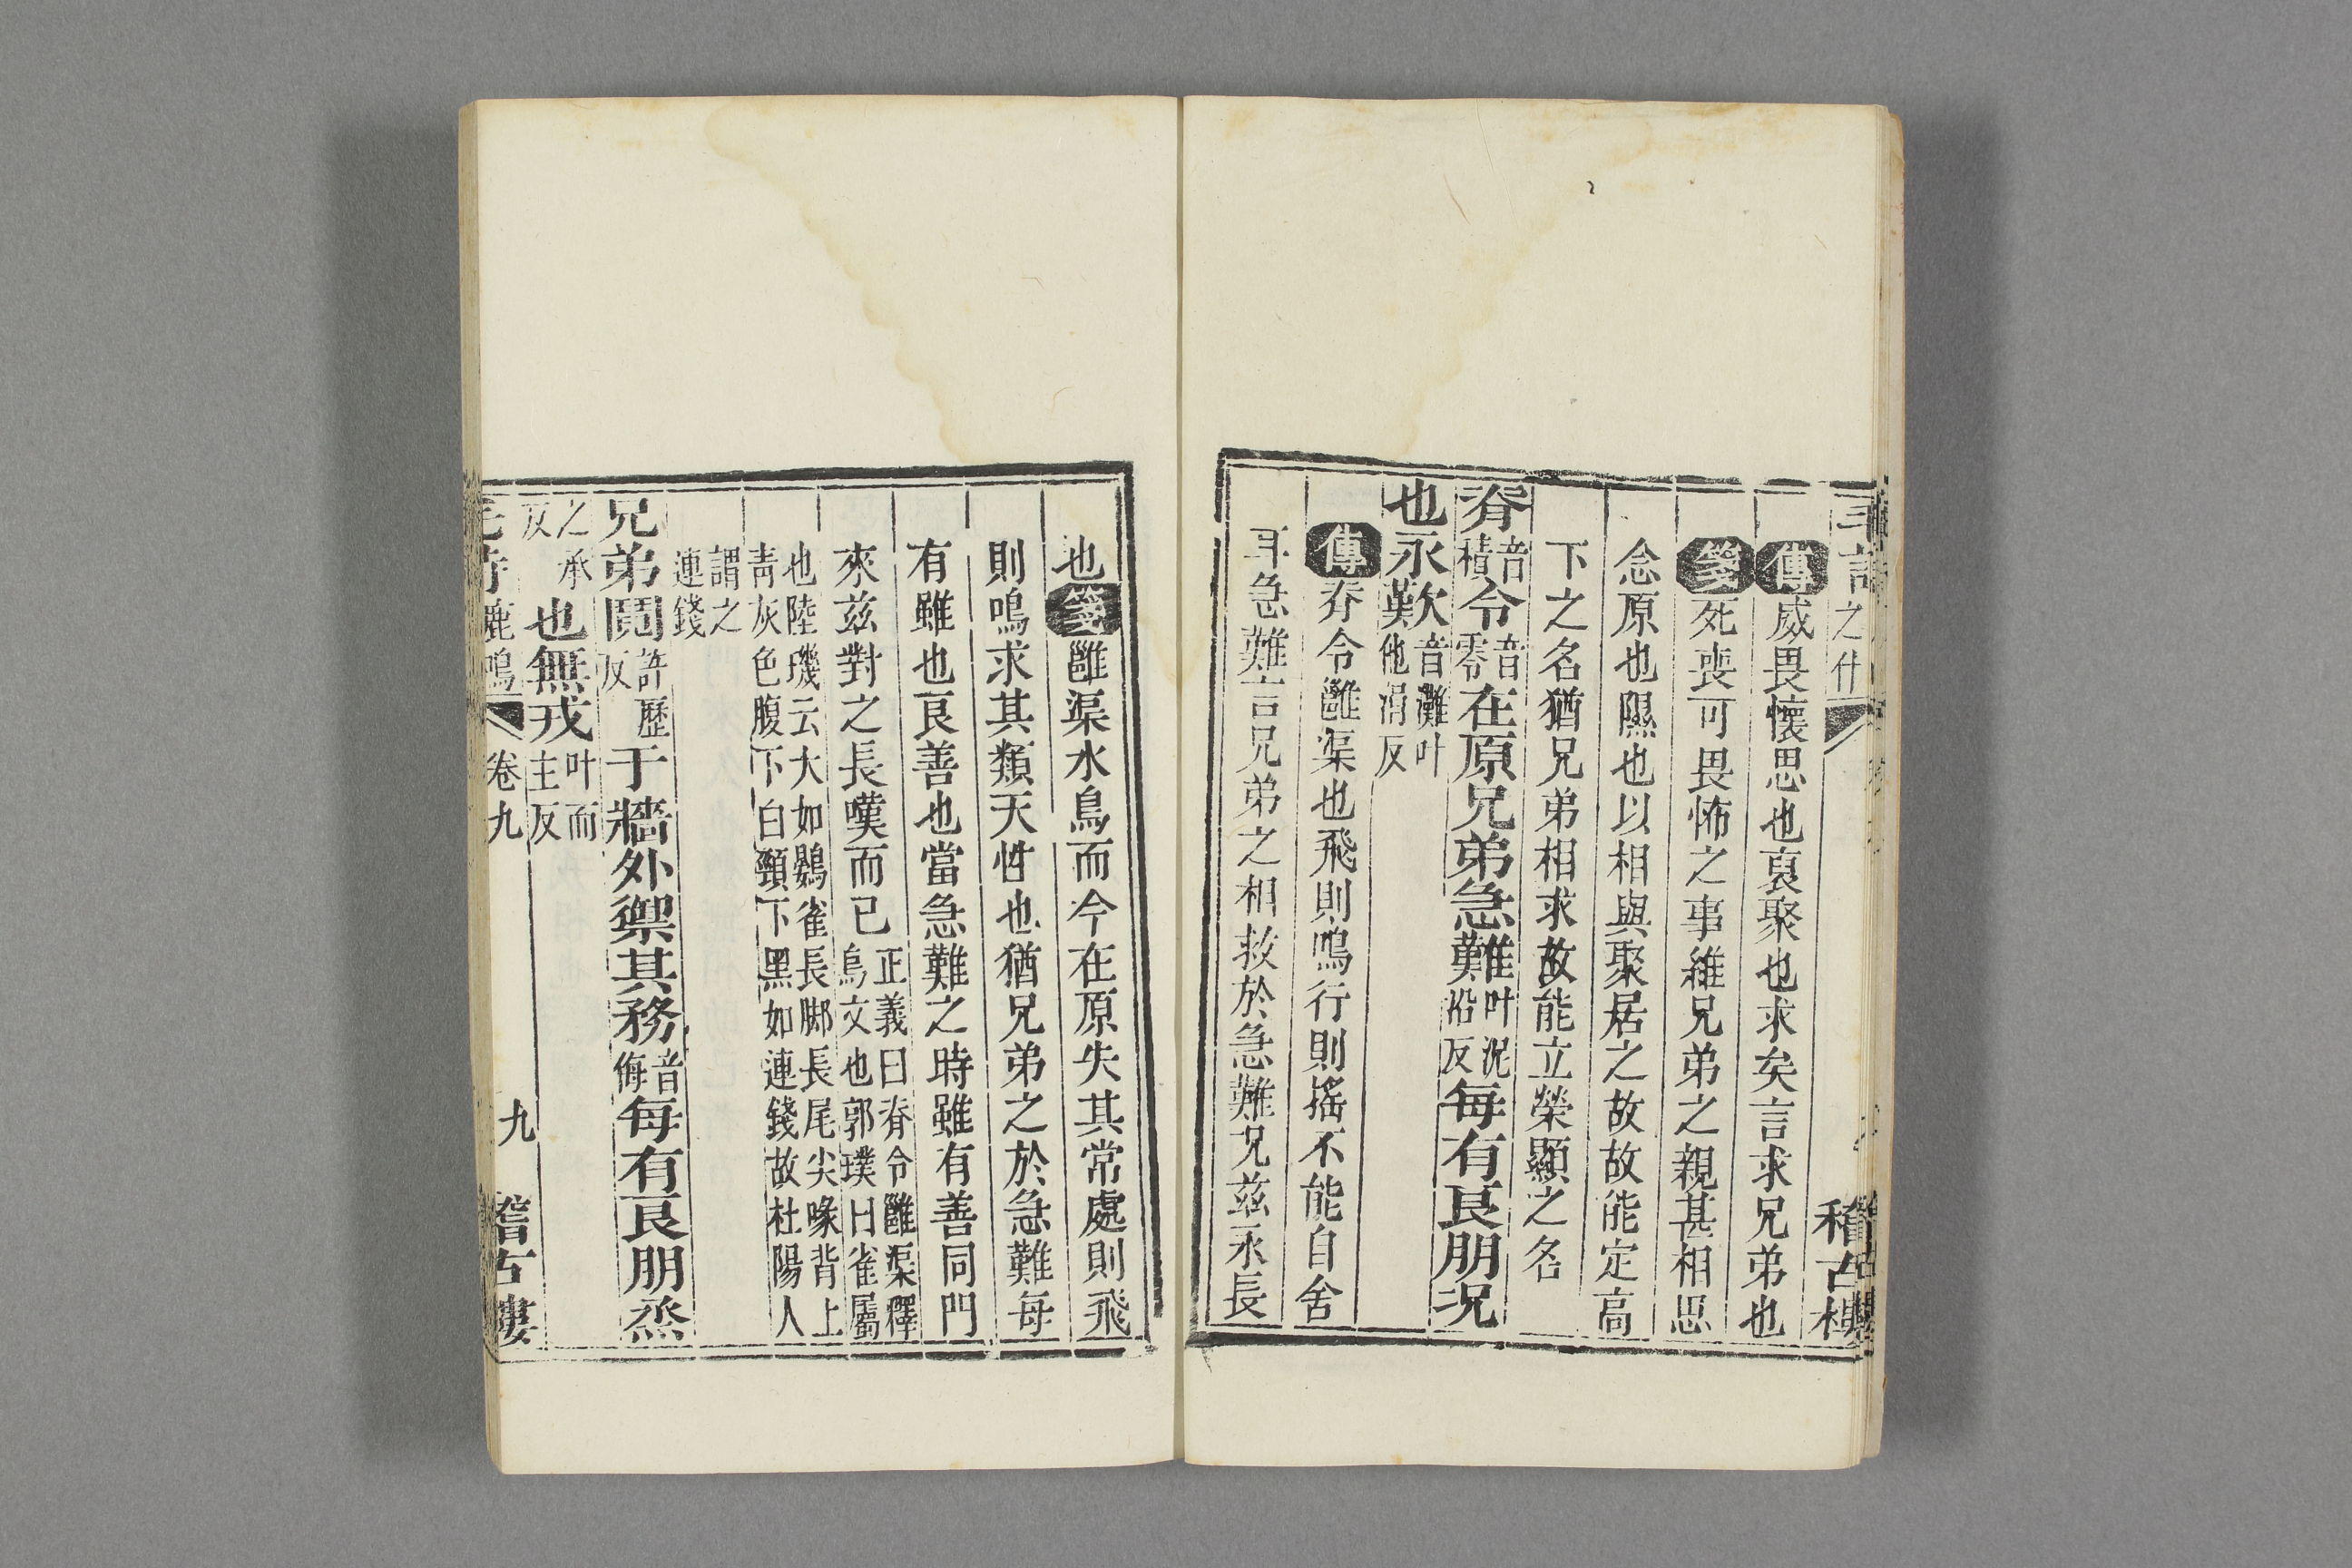 之什
稽古樓
傳威畏懷思也裒聚也求矣言求兄弟也
箋死喪可畏怖之事維兄弟之親甚相思
念原也隰也以相與聚居之故故能定高
下之名猶兄弟相求故能立榮顯之名
脊音積令音零在原兄弟急難叶泥沿反每有良朋況
也永歎音灘叶他涓反
傳脊令雝渠也飛則鳴行則搖不能自舍
耳急難言兄弟之相救於急難况兹永長
也箋雝渠水鳥而今在原失其常處則飛
則鳴求其類天性也猶兄弟之於急難每
有雖也良善也當急難之時雖有善同門
來兹對之長嘆而已正義曰脊令雝渠釋
鳥文也郭璞曰雀屬
也陸璣云大如鷃雀長脚長尾尖喙背上
青灰色腹下白頸下黑如連錢故杜陽人
謂之
連錢
兄弟鬩許歷反于牆外禦其務音侮每有良朋烝
之承反也無戎叶而主反
毛詩鹿鳴 卷九 九 稽古樓